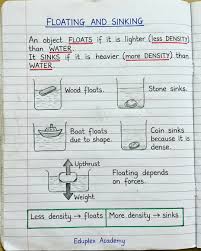 FLOATING AND SINKING
An object FLOATS if it is lighter (less DENSITY)
than WATER.
It SINKS if it is heavier (more DENSITY) than
WATER
Wood floats.
Stone sinks.
Boat floats
due to shape.
Coin sinks
because it is
dense.
Upthrust
Floating depends
on forces.
Weight
Less density → floats
More density → sinks
Eduplex Academy